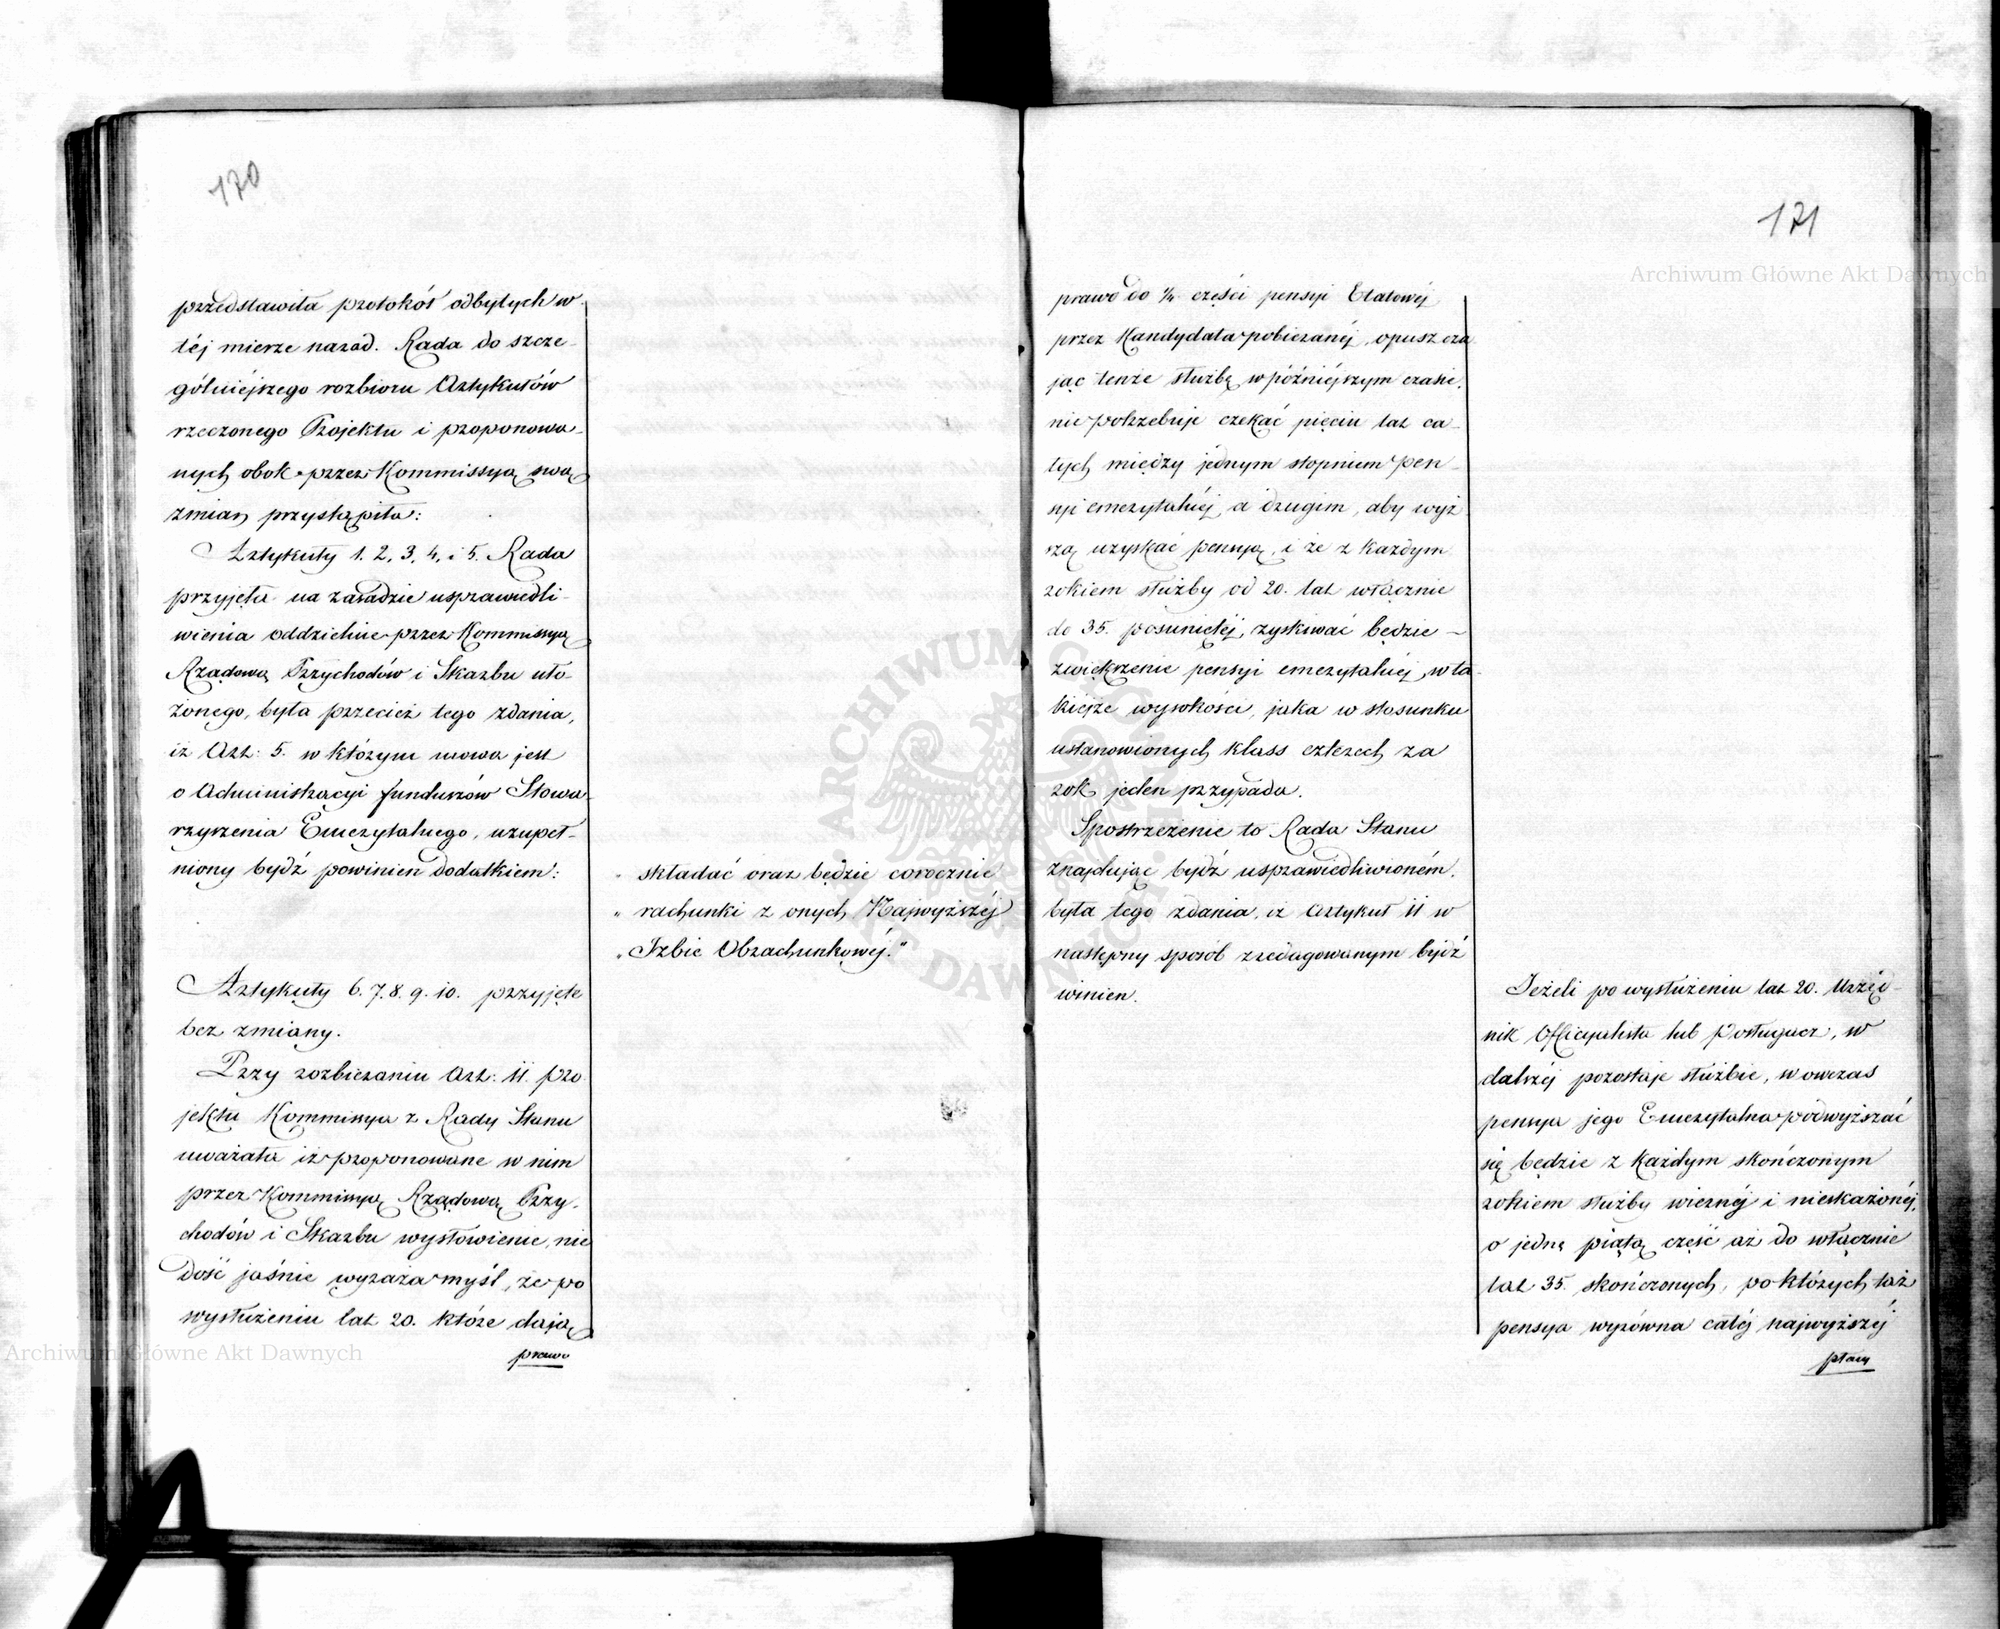 170
przedstawiła protokół odbytych w
téj mierze narad. Rada do szcze-
gólniéjszego rozbioru Artykułów
rzeczonego Projektu i proponowa-
nych obok przez Kommissyą swą
zmian przystąpiła:
Artykuły 1. 2, 3, 4, i 5. Rada
przyjęła na zasadzie usprawiedli-
wienia oddzielnie przez Kommissyą
Rządową Przychodów i Skarbu uło-
żonego, była przecież tego zdania,
iż Art: 5. w którym mowa jest
o Administracyi funduszów Stowa-
rzyszenia Emerytalnego, uzupeł-
niony bydź powinien dodatkiem:
„ składać oraz będzie corocznie
„ rachunki z onych Najwyższéj
„ Izbie Obrachunkowéj."
Artykuły 6. 7. 8. 9. 10. przyjęte
bez zmiany.
Przy rozbieraniu Art: 11. pro
jektu Kommissya z Rady Stanu
uważała iż proponowane w nim
przez Kommissyą Rządową Przy-
chodów i Skarbu wysłowienie, nie
dość jaśnie wyraża myśl, że po
wysłużeniu lat 20. które dają
prawo
171
prawo do 1/4 części pensyi Etatowéj
przez Kandydata pobieranéj, opuszcza
jąc tenże służbę w późniéjszym czasie,
nie potrzebuje czekać pięciu lat ca-
łych między jednym stopniem pen-
syi emerytalnéj, a drugim, aby wyż
szą uzyskać pensyą, i że z każdym
rokiem służby od 20. lat włącznie
do 35. posuniętéj, zyskiwać będzie –
zwiększenie pensyi emerytalnéj w ta-
kiéjże wysokości, jaka w stosunku
ustanowionych klass czterech za
rok jeden przypada.
Spostrzeżenie to Rada Stanu
znajdując bydź usprawiedliwioném,
była tego zdania, iż Artykuł 11 w
następny sposób zredagowanym bydź
winien.
Jeżeli po wysłużeniu lat 20. Urzęd-
nik Officyalista lub Posługacz, w
dalszéj pozostaje służbie, wowczas
pensya jego Emerytalna podwyższać
się będzie z każdym skończonym
rokiem służby wiernéj i nieskażonéj,
o jedną piątą część aż do włącznie
lat 35. skończonych, po których taż
pensya wyrówna całéj najwyższéj
płacy
Archiwum Główne Akt Dawnych
Archiwum Główne Akt Dawnych